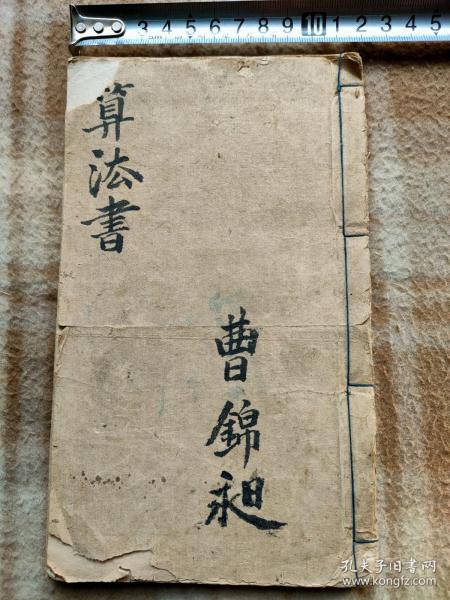 3 4 5 6 7 8 9 10 1 2 3 4 5
算法書
曹錦昶
孔夫子旧书网
www.kongfz.com